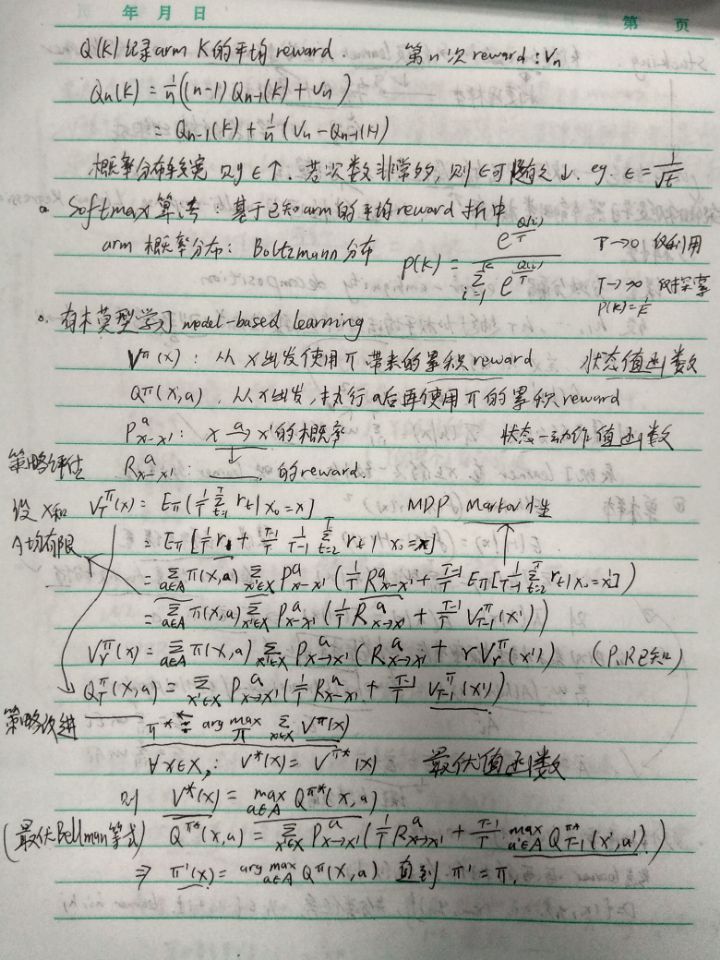 年 月 日
第 页
Q(K)记录arm K的平均reward. 第n次reward: Vn
Qn(K) = 1/n((n-1)Qn-1(K)+Vn)
= Qn-1(K) + 1/n(Vn-Qn-1(K))
概率分布较宽则 ε↑. 若次数非常多, 则ε可随之↓. eg. ε = 1/√t
Softmax算法: 基于已知arm的平均reward折中
arm 概率分布: Boltzmann 分布 P(K) = e^(Q(k)/T) / Σ_{i=1}^{K} e^(Q(i)/T) T→0 仅利用
T→∞ 仅探索
P(K)=1/K
有模型学习 model-based learning
V^π(x): 从x出发使用π带来的累积reward 状态值函数
Q^π(x,a), 从x出发, 执行a后再使用π的累积reward
P^a_{x→x'}: x -a→ x'的概率 状态-动作值函数
策略评估 R^a_{x→x'}: 的reward.
设X和 V_T^π(x) = E_π[1/T Σ_{t=1}^{T} r_t | x_0=x] MDP Markov性
A均有限 = E_π[1/T r_1 + T-1/T 1/T-1 Σ_{t=2}^{T} r_t | x_0=x]
= Σ_{a∈A} π(x,a) Σ_{x'∈X} P^a_{x→x'}(1/T R^a_{x→x'} + T-1/T E_π[1/T-1 Σ r_t | x_0=x'])
= Σ_{a∈A} π(x,a) Σ_{x'∈X} P^a_{x→x'}(1/T R^a_{x→x'} + T-1/T V_{T-1}^π(x'))
V_r^π(x) = Σ_{a∈A} π(x,a) Σ_{x'∈X} P^a_{x→x'}(R^a_{x→x'} + rV_r^π(x')) (P,R已知)
Q_T^π(x,a) = Σ_{x'∈X} P^a_{x→x'}(1/T R^a_{x→x'} + T-1/T V_{T-1}^π(x'))
策略改进 π* = arg max_π Σ_{x∈X} V^π(x)
∀x∈X,: V*(x) = V^π*(x) 最优值函数
则 V*(x) = max_{a∈A} Q^π*(x,a)
(最优Bellman等式) Q^π*(x,a) = Σ_{x'∈X} P^a_{x→x'}(1/T R^a_{x→x'} + T-1/T max_{a'∈A} Q_{T-1}^π*(x',a'))
⇒ π'(x) = arg max_{a∈A} Q^π(x,a) 直到 π'=π.